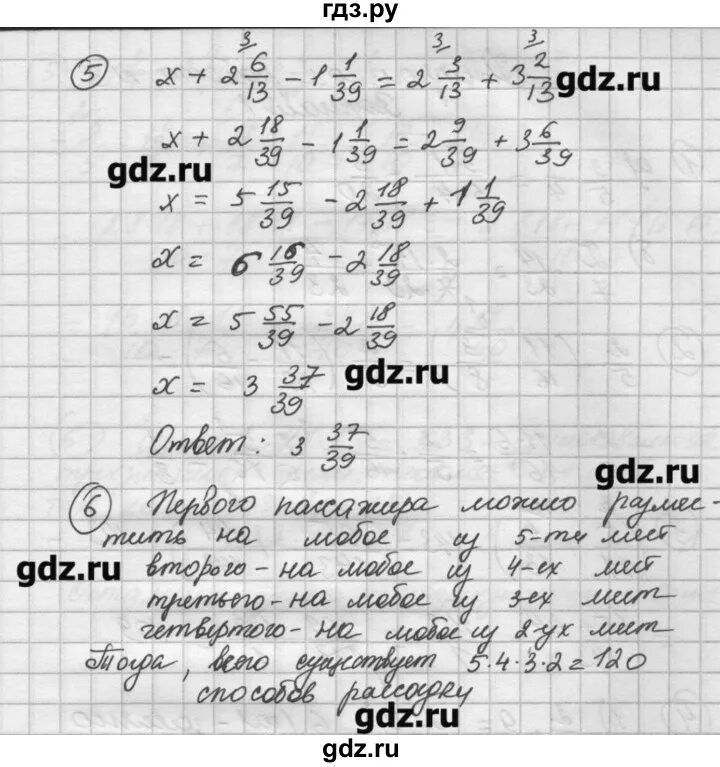 гдз.ру
3 3 3
5 x + 2 6/13 - 1 1/39 = 2 3/13 + 3 2/13 gdz.ru
x + 2 18/39 - 1 1/39 = 2 9/39 + 3 6/39
gdz.ru
x = 5 15/39 - 2 18/39 + 1 1/39
x = 6 16/39 - 2 18/39
x = 5 55/39 - 2 18/39
x = 3 37/39 gdz.ru
Ответ: 3 37/39
gdz.ru
6 Первого пассажира можно размес-
тить на любое из 5-ти мест
gdz.ru
второго - на любое из 4-ех мест
третьего - на любое из 3-ех мест
четвертого - на любое из 2-ух мест
Тогда, всего существует 5·4·3·2=120
способов рассадки
gdz.ru
gdz.ru